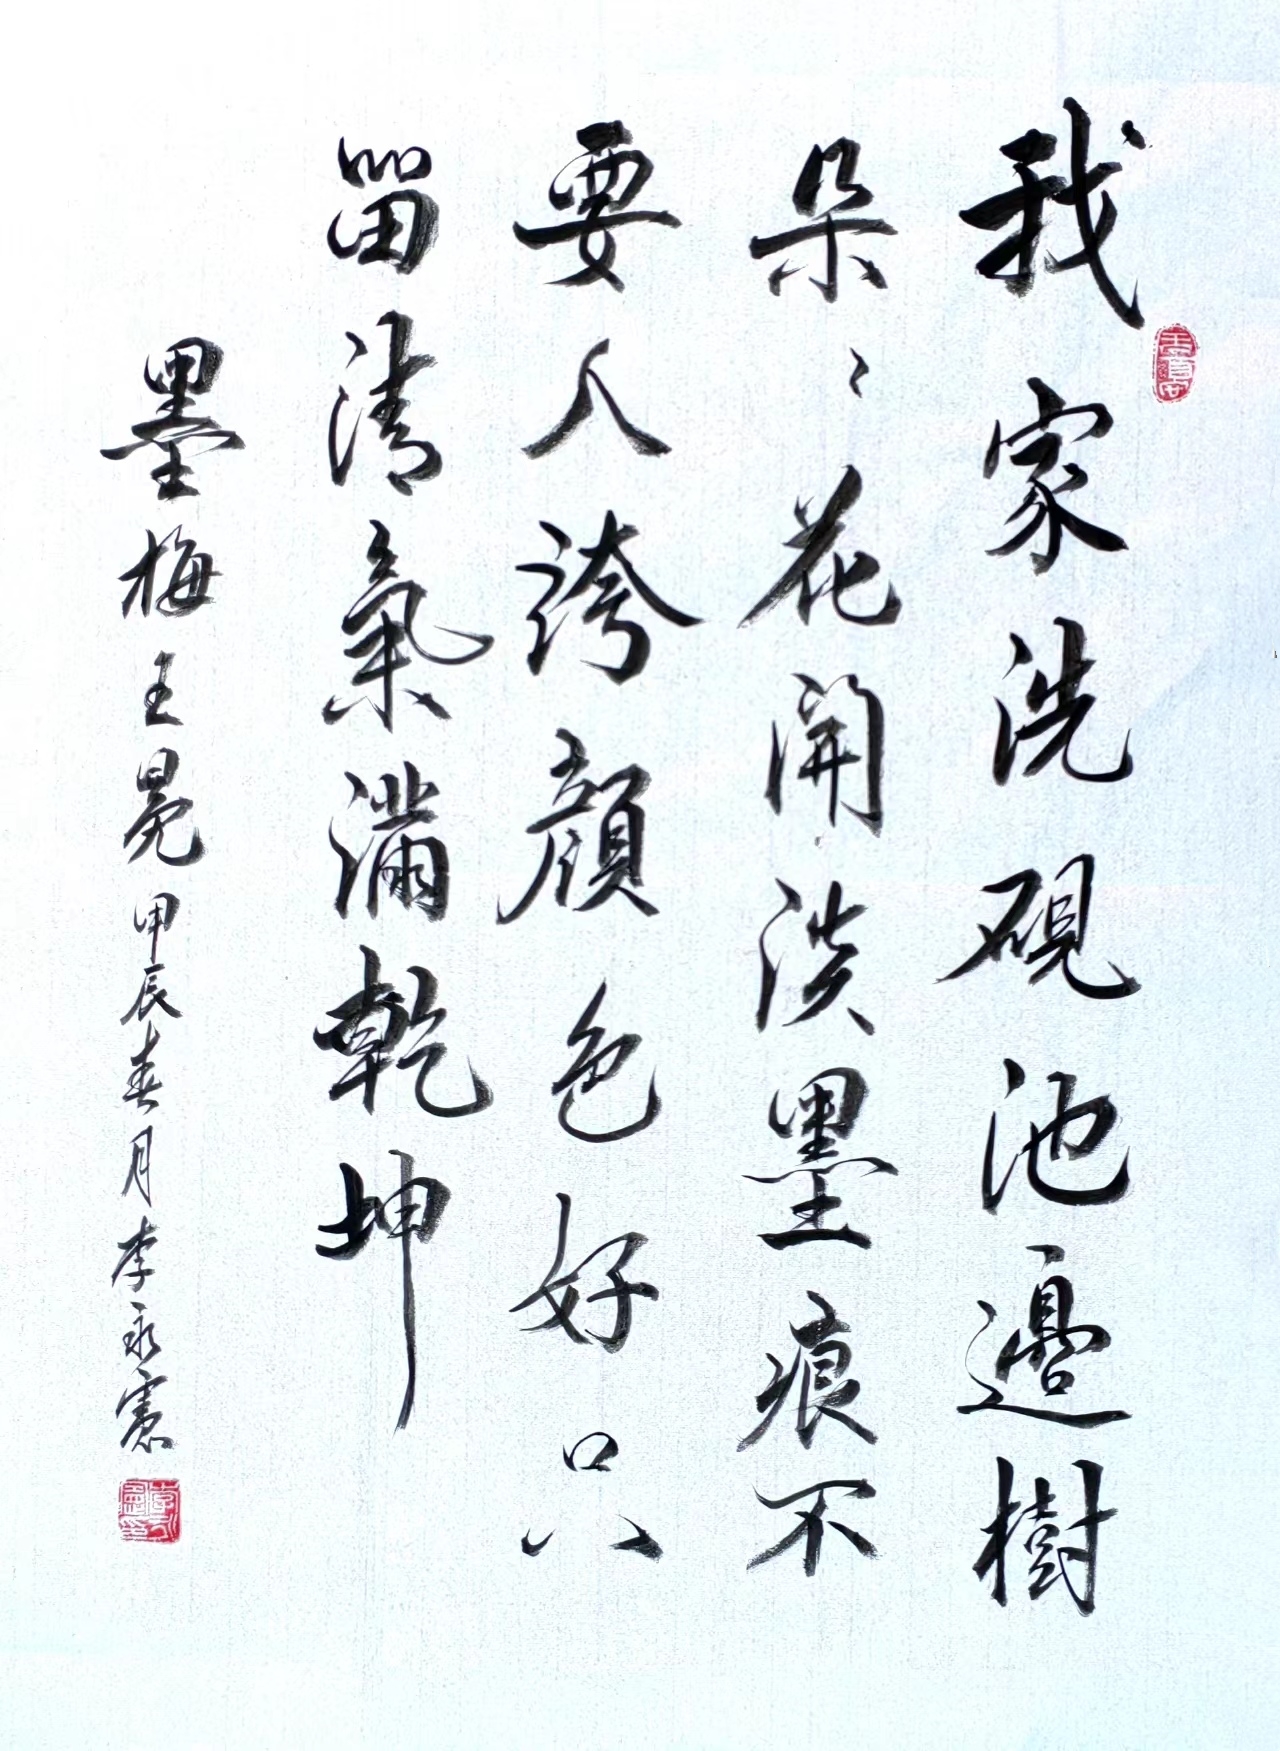 我家洗硯池邊樹
朵〻花開淡墨痕不
要人誇顏色好只
留清氣滿乾坤
墨梅王冕甲辰春月李永憲